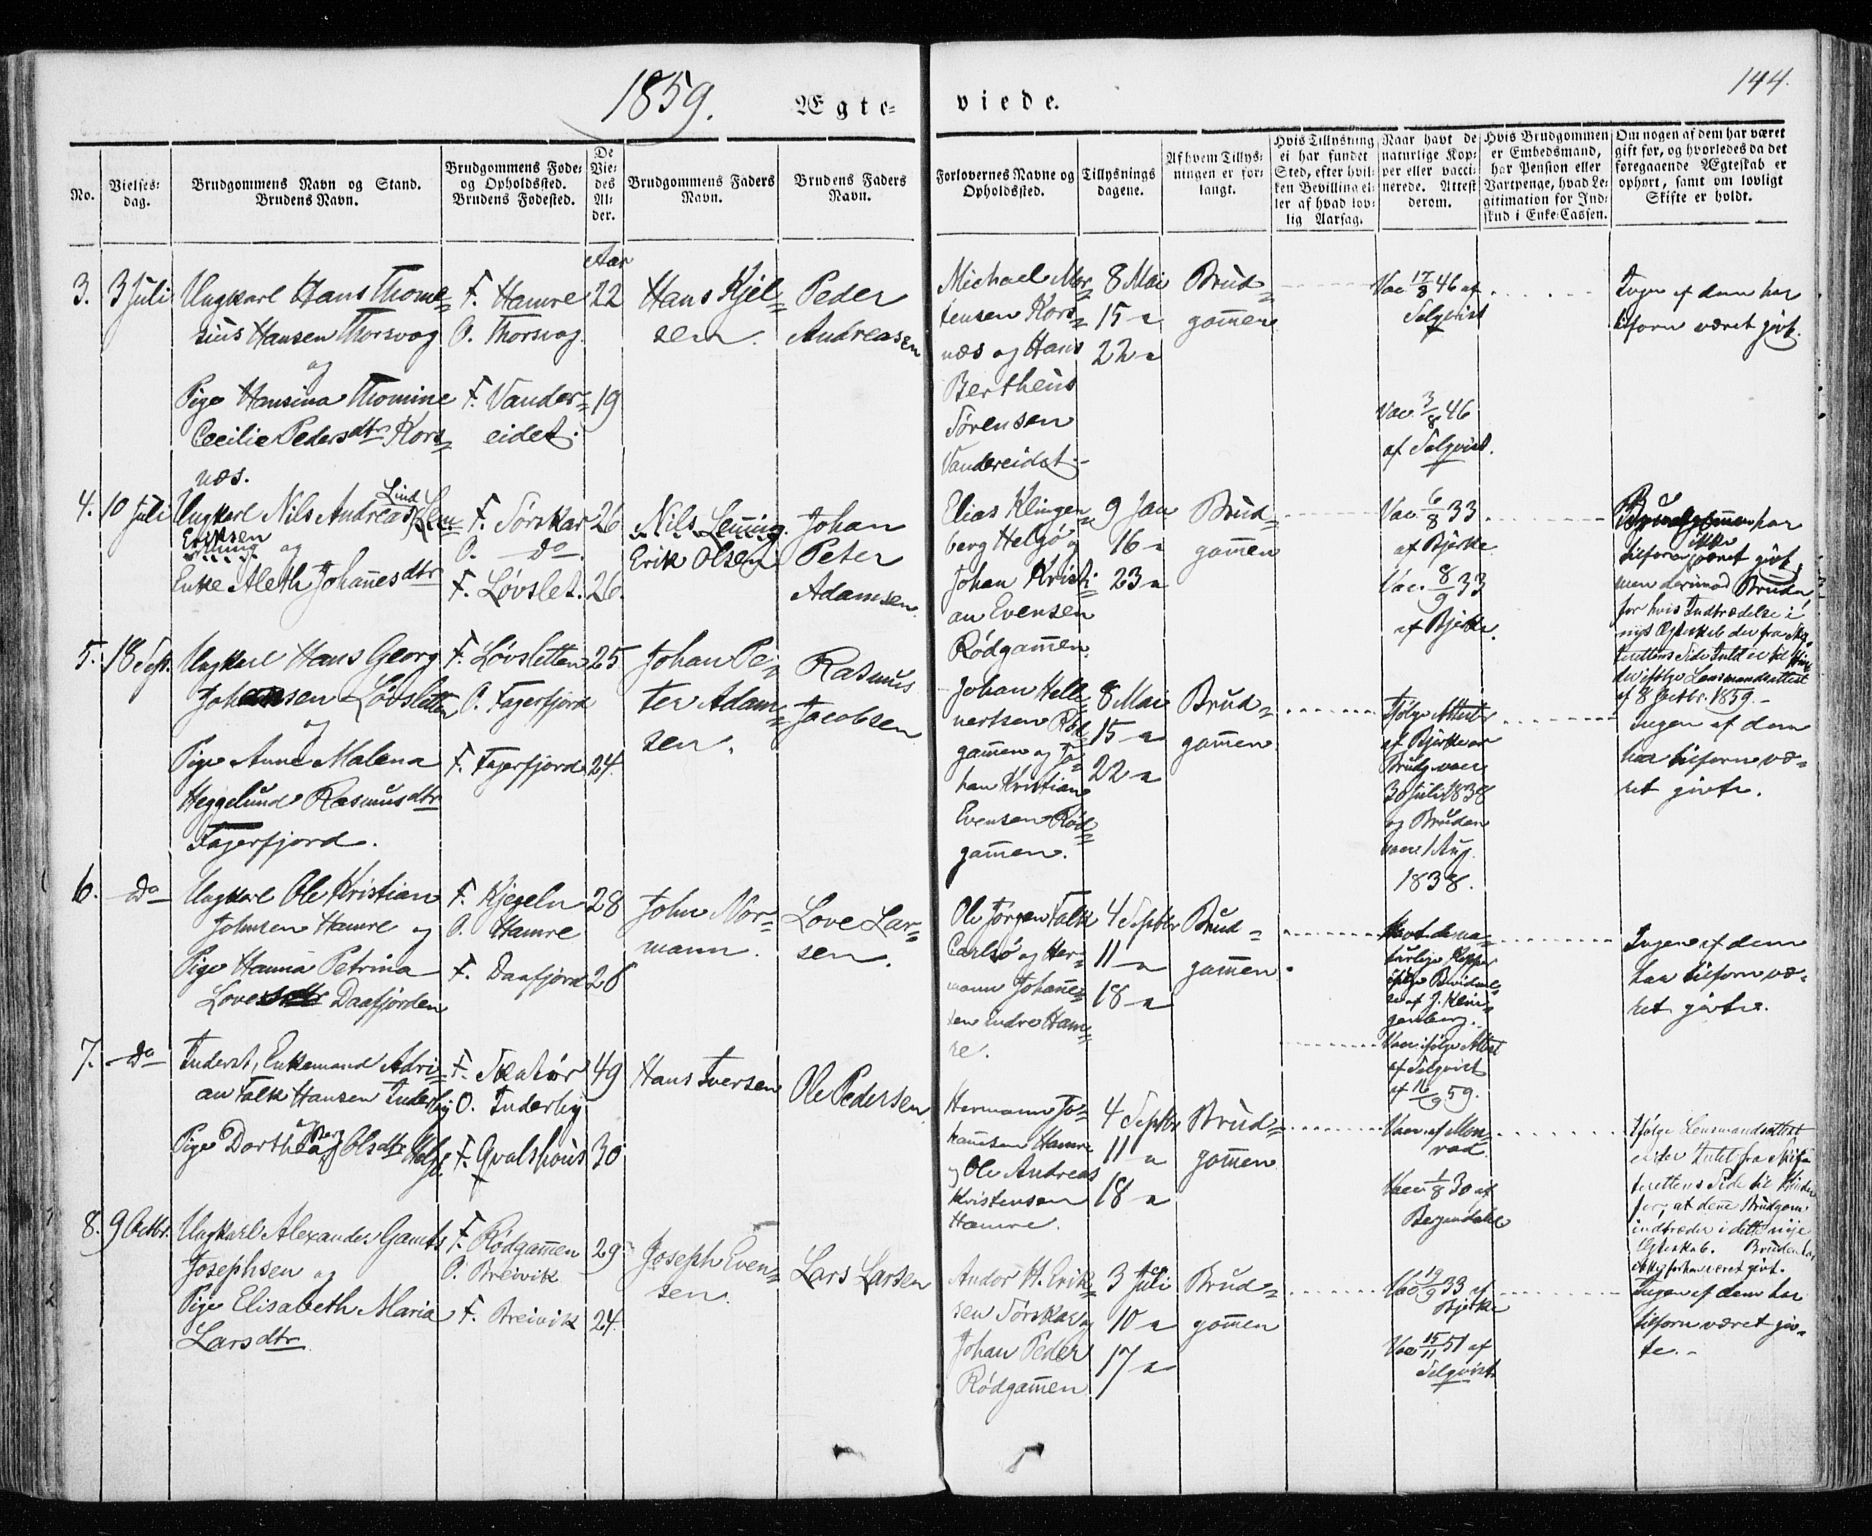 1859.
Ægte-
viede.
144.
No.
Vielses-
dag.
Brudgommens Navn og Stand.
Brudens Navn.
Brudgommens Føde-
og Opholdssted.
Brudens Fødested.
De
Vie-
des
Al-
der.
Brudgommens Faders
Navn.
Brudens Faders
Navn.
Forlovernes Navne og
Opholdssted.
Tillysnings
dagene.
Af hvem Tillys-
ningen er for-
langt.
Hvis Tillysning
ei har fundet
Sted, efter hvil-
ken Bevilling el-
ler af hvad lov-
lig Aarsag.
Naar havt de
naturlige Kop-
per eller vacci-
nerede. Attest
derom.
Hvis Brudgommen
er Embedsmand,
har Pension eller
Vartpenge, hvad Le-
gitimation for Ind-
skud i Enke-Cassen.
Om nogen af dem har været
gift før, og hvorledes da det
foregaaende Ægteskab er
ophørt, samt om lovligt
Skifte er holdt.
Aar
3. 3 Juli
Ungkarl Hans Thome-
sius Hansen Thorsvag
og
Pige Hansina Thomine
Cecilie Pedersdtr Kors-
næs.
F. Hamre
O. Thorsvag
F. Vander-
eidet.
22
19
Hans Kjel-
sen.
Peder
Andreasen
Michael Mor-
tensen Kors-
næs og Hans
Bertheus
Sørensen
Vandereidet
8 Mai
15 "
22 "
Brud-
gom̄en
Vac 17/8 46 af
Selqvist
Vac. 3/8 46
af Selqvist.
Ingen af dem har
tilforn været givt.
4. 10 Juli
Ungkarl Nils Andreas Lind
Eriksen
og
Enke Aleth Johan̄esdtr
F. Torskar
O. do
F. Løvslet.
26
26.
Nils Lem̄ing.
Erik Olsen
Johan
Peter
Adamsen
Elias Klingen-
berg Helgø og
Johan Kristi-
an Evensen
Rødgam̄en
9 Jan
16 "
23 "
Brud-
gom̄en
Vac. 6/8 33
af Bjerke
Vac. 8/9 33
af Bjerke.
Brudgom̄en har
ikke
tilforn været givt,
men derimod Bruden,
for hvis Indtrædelse i
nyt Ægteskab der fra
rettens Side Intet er til
der ifølge Lensmandsattest
af 8 Octbr. 1859.
5. 18 Sept.
Ungkarl Hans Georg
Johansen Løvsletten
og
Pige Anne Malena
Heggelund Rasmusdtr
Fagerfjord.
F. Løvsletten
O. Fagerfjord
F. Fagerfjord
25
24.
Johan Pe-
ter Adam-
sen.
Rasmus
Jacobsen
Johan Hell-
nertsen Rød-
gam̄en og Jo-
han Kristian
Evensen Rød-
gam̄en.
8 Mai
15 "
22 "
Brud-
gom̄en
Ifølge Attest
af Bjerke er
Brudg. vacc.
30 Juli 1838
og Bruden
vacc. 1 Aug.
1838.
Ingen af dem
har tilforn væ-
ret givte.
6. do
Ungkarl Ole Kristian
Johnsen Hamre og
Pige Han̄a Petrina
Love Daafjorden
F. Kjegeln
O. Hamre
F. Daafjord
28
28
John Nor-
mann.
Love Lar-
sen.
Ole Jørgen Falk
Carlsø og Her-
mann Johan̄e-
sen Indre Ham-
re.
4 Septbr
11 "
18 "
Brud-
gom̄en.
Havt de na-
turlige Kopper
ifølge Bevidnel-
se af J. Klin-
genberg.
Vac. ifølge Attest
af Selqvist
af 16/9 59.
Ingen af dem
har tilforn væ-
ret givte.
7. do
Inderst, Enkemand Adri-
an Falk Hansen Inderby
og
Pige Dorthea Berg Olsdtr Helgø
F. Skatør
O. Inderby
F. Qvalshous
49
30
Hans Iversen
Ole Pedersen
Hermann Jo-
han̄esen Hamre
og Ole Andreas
Kristensen
Hamre.
4 Septbr
11 "
18 "
Brud-
gom̄en
Vacc. af Mon-
rad.
Vacc. 1/8 30 af
Bergendahl
Ifølge Lensmandsattest
er der Intet fra Skifte-
rettens Side til Hinder
for, at den̄e Brudgom
indtræder i dette nye
Ægteskab. Bruden har
ikke forhen været givt.
8. 9 Octbr.
Ungkarl Alexander Gamts
Josephsen og
Pige Elisabeth Maria
Larsdtr
F. Rødgam̄en
O. Breivik
F. Breivik
29
24.
Joseph Even-
sen.
Lars Larsen
Andor H. Erik-
sen Torskar og
Johan Peder
Rødgam̄en
3 Juli
10 "
17 "
Brud-
gom̄en
Vac 19/9 33 af
Bjerke
Vac 15/11 51 af
Selqvist.
Ingen af dem har
tilforn været giv-
te.